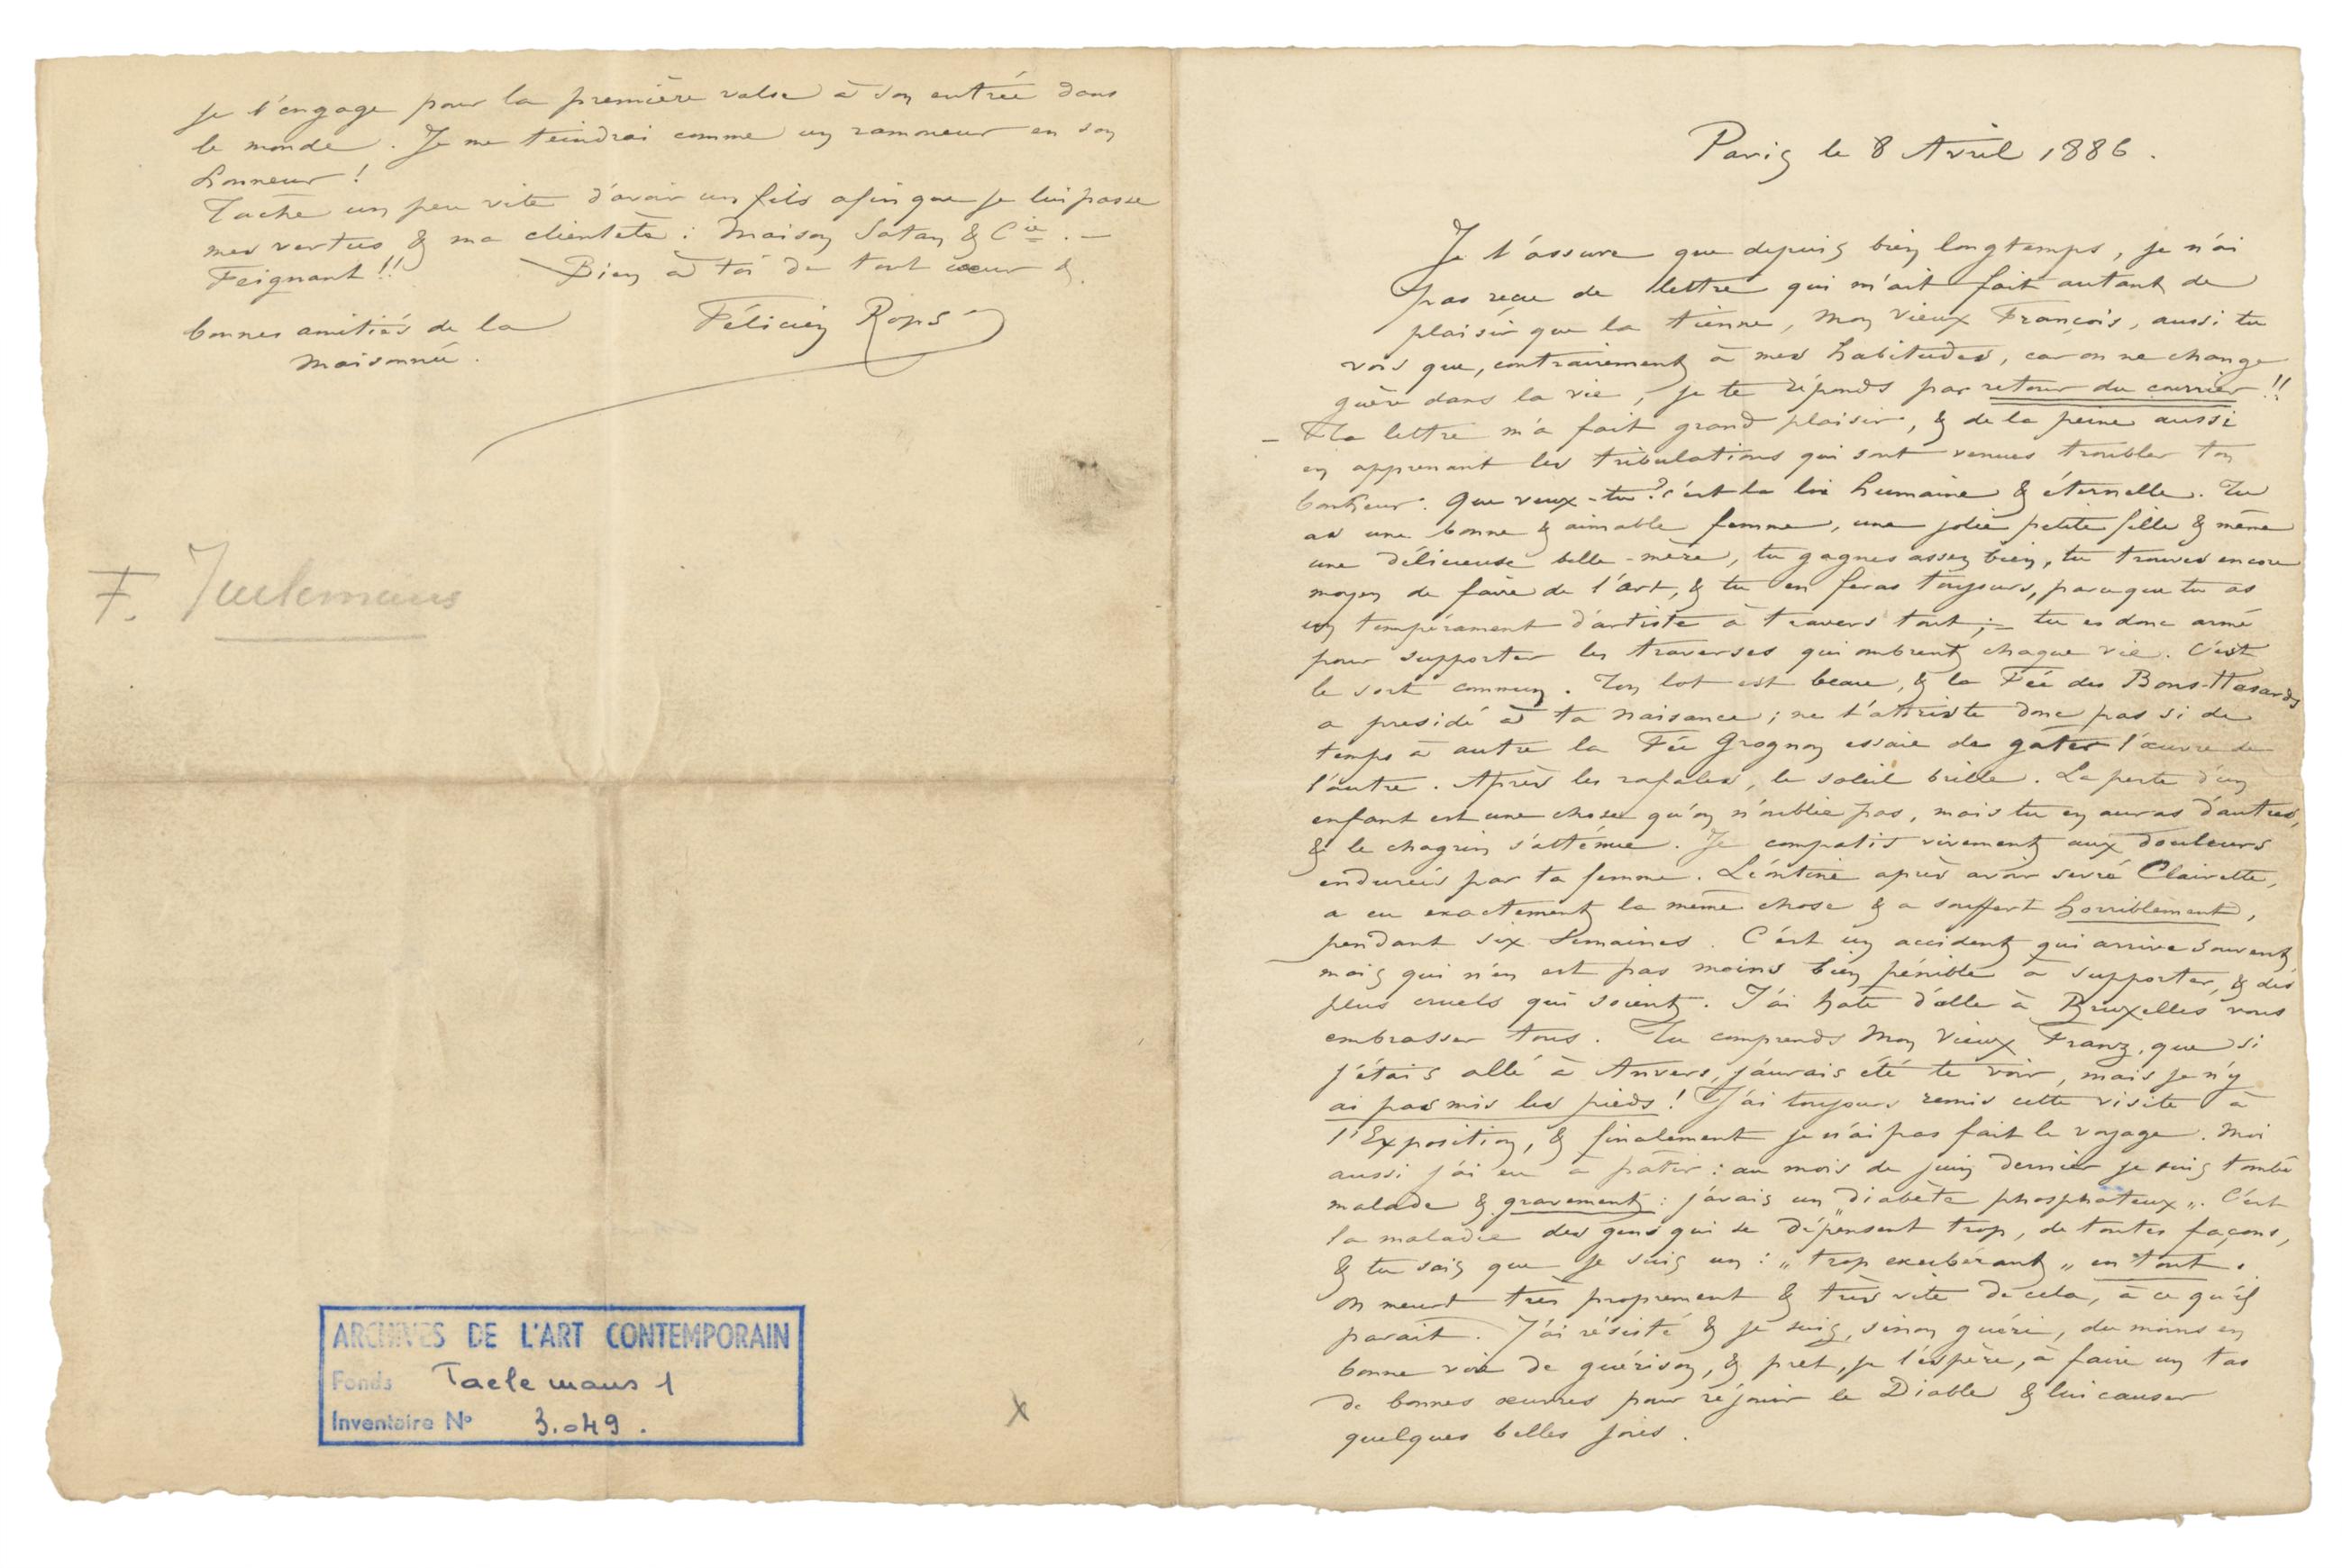 je t'engage pour la première valse à son entrée dans
le monde. Je me teindrai comme un ramoneur en son
honneur !
Tache un peu vite d'avoir un fils afin que je lui passe
mes vertus & ma clientèle : Maison Satan & Cie. —
Feignant !! Bien à toi de tout cœur &.
bonnes amitiés de la
maisonnée.
Félicien Rops
F. Taelemans
ARCHIVES DE L'ART CONTEMPORAIN
Fonds Taelemans 1
Inventaire No 3.049.
x
Paris le 8 Avril 1886.
Je t'assure que depuis bien longtemps, je n'ai
pas reçu de lettre qui m'ait fait autant de
plaisir que la tienne, mon vieux François, aussi tu
vois que, contrairement à mes habitudes, car on ne change
guère dans la vie, je te réponds par retour du courrier !!
– Ta lettre m'a fait grand plaisir, & de la peine aussi
en apprenant les tribulations qui sont venues troubler ton
bonheur. Que veux-tu ? c'est la loi humaine & éternelle. Tu
as une bonne & aimable femme, une jolie petite fille & même
une délicieuse belle-mère, tu gagnes assez bien, tu trouves encore
moyen de faire de l'art, & tu en feras toujours, parceque tu as
un tempérament d'artiste à travers tout ; – tu es donc armé
pour supporter les traverses qui ombrent chaque vie. C'est
le sort commun. Ton lot est beau, & la Fée des Bons-Hasards
a presidé à ta naisance ; ne t'attriste donc pas si de
temps à autre la Fée Grognon essaie de gâter l'œuvre de
l'autre. Après les rafales, le soleil brille. La perte d'un
enfant est une chose qu'on n'oublie pas, mais tu en auras d'autres,
& le chagrin s'atténue. Je compatis vivement aux douleurs
endurées par ta femme. Léontine après avoir sevré Clairette,
a eu exactement la même chose & a souffert horriblement,
pendant six semaines. C'est un accident qui arrive souvent
mais qui n'en est pas moins bien pénible à supporter, & des
plus cruels qui soient. J'ai hate d'aller à Bruxelles vous
embrasser tous. Tu comprends mon vieux Franz, que si
j'étais allé à Anvers, j'aurais été te voir, mais je n'y
ai pas mis les pieds ! J'ai toujours remis cette visite à
l'Exposition, & finalement je n'ai pas fait le voyage. Moi
aussi j'ai eu à pâtir : au mois de juin dernier je suis tombé
malade & gravement : j'avais un „diabète phosphateux„. C'est
la maladie des gens qui se dépensent trop, de toutes façons,
& tu sais que je suis un : „trop exubérant„ en tout.
On meurt très proprement & très vite de cela, à ce qu'il
parait. J'ai résisté & je suis, sinon guéri, du moins en
bonne voie de guérison, & prêt, je l'espère, à faire un tas
de bonnes œuvres pour réjouir le Diable & lui causer
quelques belles joies.